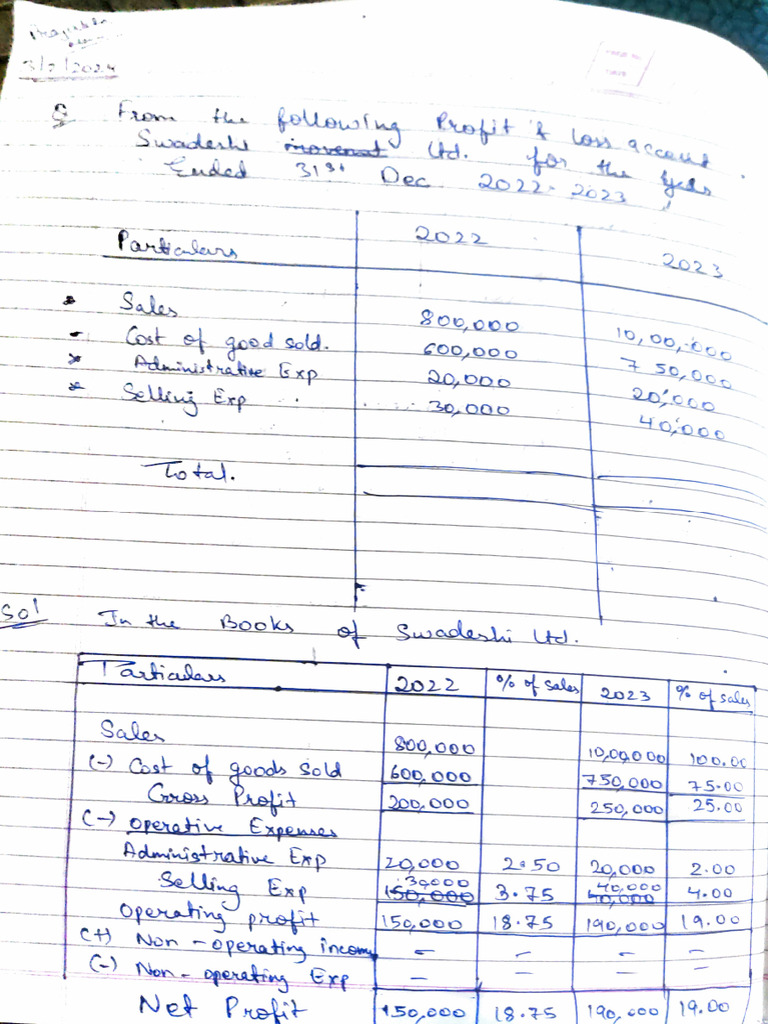 3/7/2024
Q From the following Profit & loss account
Swadeshi Ltd. for the years
Ended 31st Dec 2022-2023
Particulars 2022 2023
Sales 800,000 10,00,000
Cost of good sold. 600,000 7 50,000
Administrative Exp 20,000 20,000
Selling Exp 30,000 40,000
Total.
Sol In the Books of Swadeshi Ltd.
Particulars 2022 % of sales 2023 % of sales
Sales 800,000 10,00,000 100.00
(-) Cost of goods sold 600,000 750,000 75.00
Gross Profit 200,000 250,000 25.00
(-) operative Expenses
Administrative Exp 20,000 2.50 20,000 2.00
Selling Exp 30,000 3.75 40,000 4.00
Operating profit 150,000 18.75 190,000 19.00
(+) Non-operating income - - - -
(-) Non-operating Exp - - - -
Net Profit 150,000 18.75 190,000 19.00